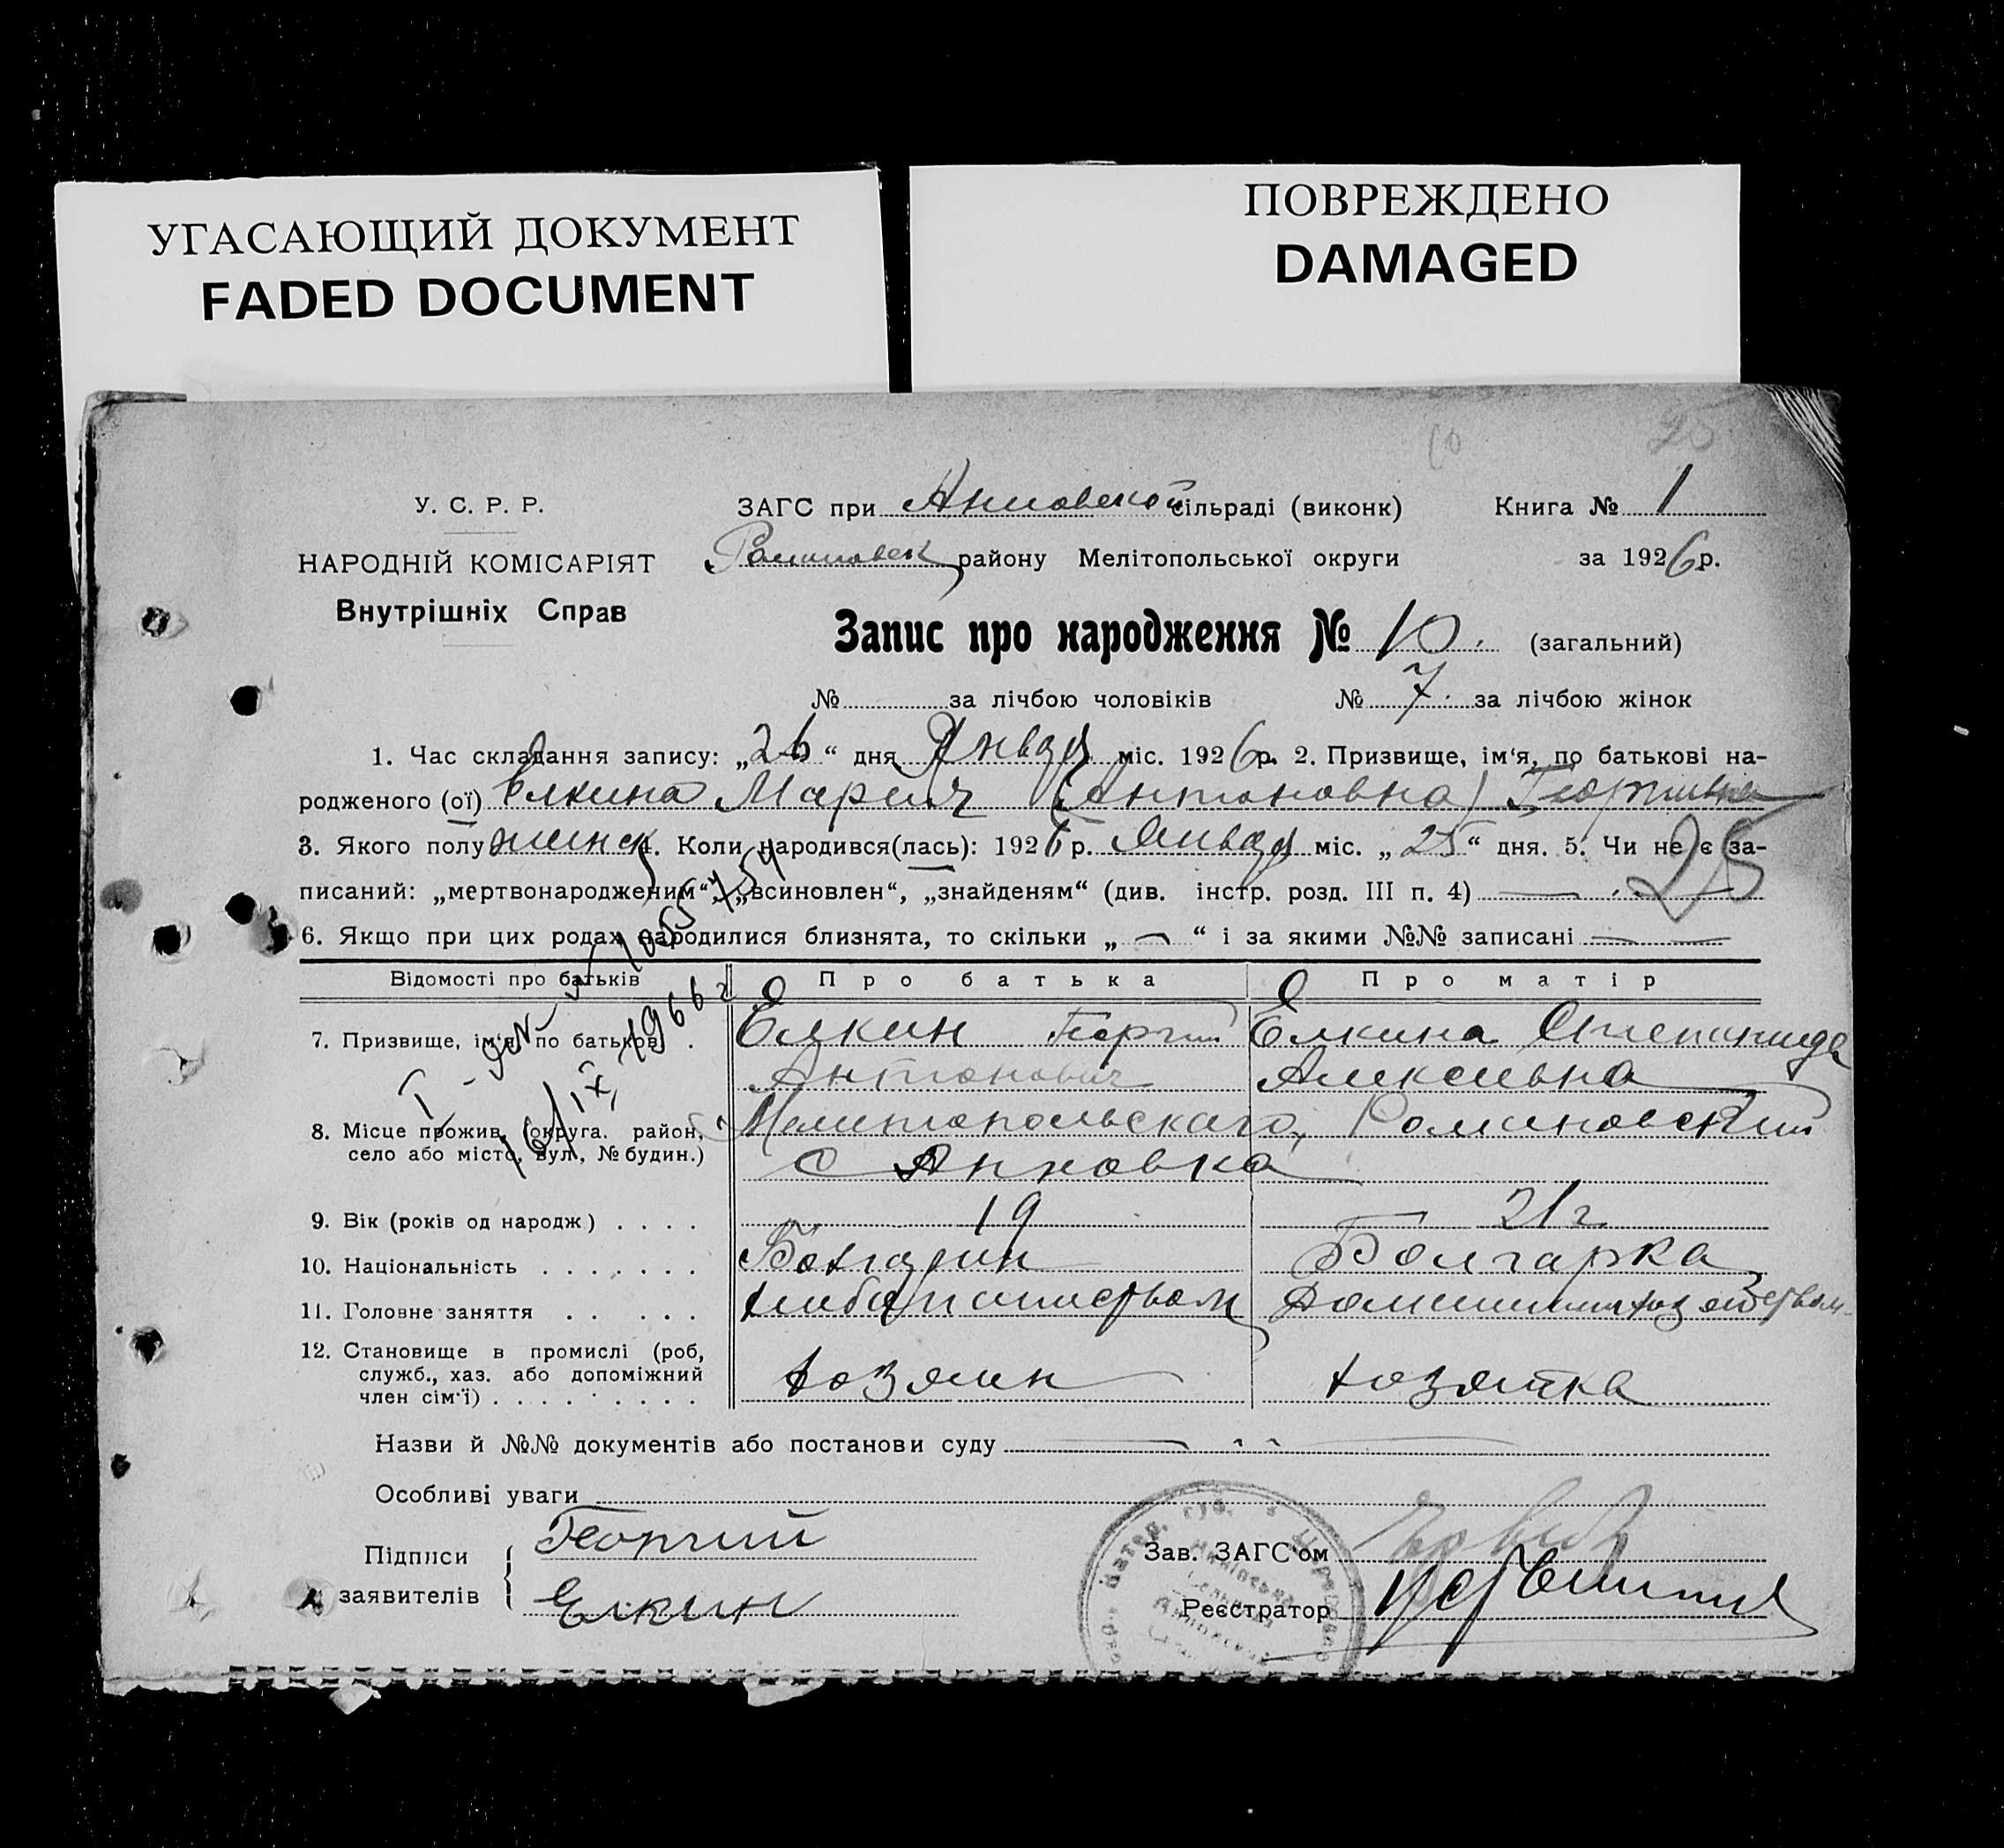 УГАСАЮЩИЙ ДОКУМЕНТ
FADED DOCUMENT
ПОВРЕЖДЕНО
DAMAGED
25
10
У. С. Р. Р.
НАРОДНІЙ КОМІСАРІЯТ
Внутрішніх Справ
ЗАГС при Анновской сільраді (виконк) Книга № 1
Романовск району Мелітопольської округи за 1926 р.
Запис про народження № 10. (загальний)
№ за лічбою чоловіків № 7. за лічбою жінок
1. Час складання запису: „26“ дня Января міс. 1926 р. 2. Призвище, ім‘я, по батькові на-
родженого (ої) Елкина Мария (Антоновна) Георгиевна
3. Якого полу женск 4. Коли народився(лась): 1926 р. Января міс. „25“ дня. 5. Чи не є за-
писаний: „мертвонародженим“, „всиновлен“, „знайденям“ (див. інстр. розд. III п. 4)
25
6. Якщо при цих родах народилися близнята, то скільки „ — “ і за якими №№ записані
Відомості про батьків Про батька Про матір
7. Призвище, ім‘я, по батькові . Ёлкин Георгий Ёлкина Степанида
Антонович Алексевна
8. Місце прожив. (округа. район, Мелитопольскаго, Романовский
село або місто, вул., № будин.) с Анновка
16/IX 1966 г
9. Вік (років од народж) . . . . 19 21 г
10. Національність . . . . . . . Болгарин Болгарка
11. Головне заняття . . . . . хлебопашеством домашним хозяйством
12. Становище в промислі (роб,
служб., хаз. або допоміжний хозяин хозяйка
член сім‘ї) . . . . . . . . .
Назви й №№ документів або постанови суду
Особливі уваги
Підписи Георгий
заявителів Елкин
Зав. ЗАГС‘ом
Реєстратор